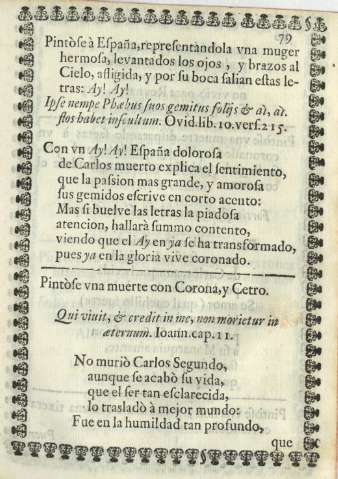 79
Pintòse à España, representandola vna muger
hermosa, levantados los ojos, y brazos al
Cielo, afligida, y por su boca salian estas le-
tras: Ay! Ay!
Ipse nempe Phæbus suos gemitus folijs & ai, ai.
flos habet inscultum. Ovid. lib. 10. vers. 215.
Con vn Ay! Ay! España dolorosa
de Carlos muerto explica el sentimiento,
que la passion mas grande, y amorosa
sus gemidos escrive en corto acento:
Mas si buelve las letras la piadosa
atencion, hallarà summo contento,
viendo que el Ay en ya se ha transformado,
pues ya en la gloria vive coronado.
Pintòse vna muerte con Corona, y Cetro.
Qui viuit, & credit in me, non morietur in
æternum. Ioann. cap. 11.
No muriò Carlos Segundo,
aunque se acabò su vida,
que el ser tan esclarecida,
lo trasladò à mejor mundo:
Fue en la humildad tan profundo,
que